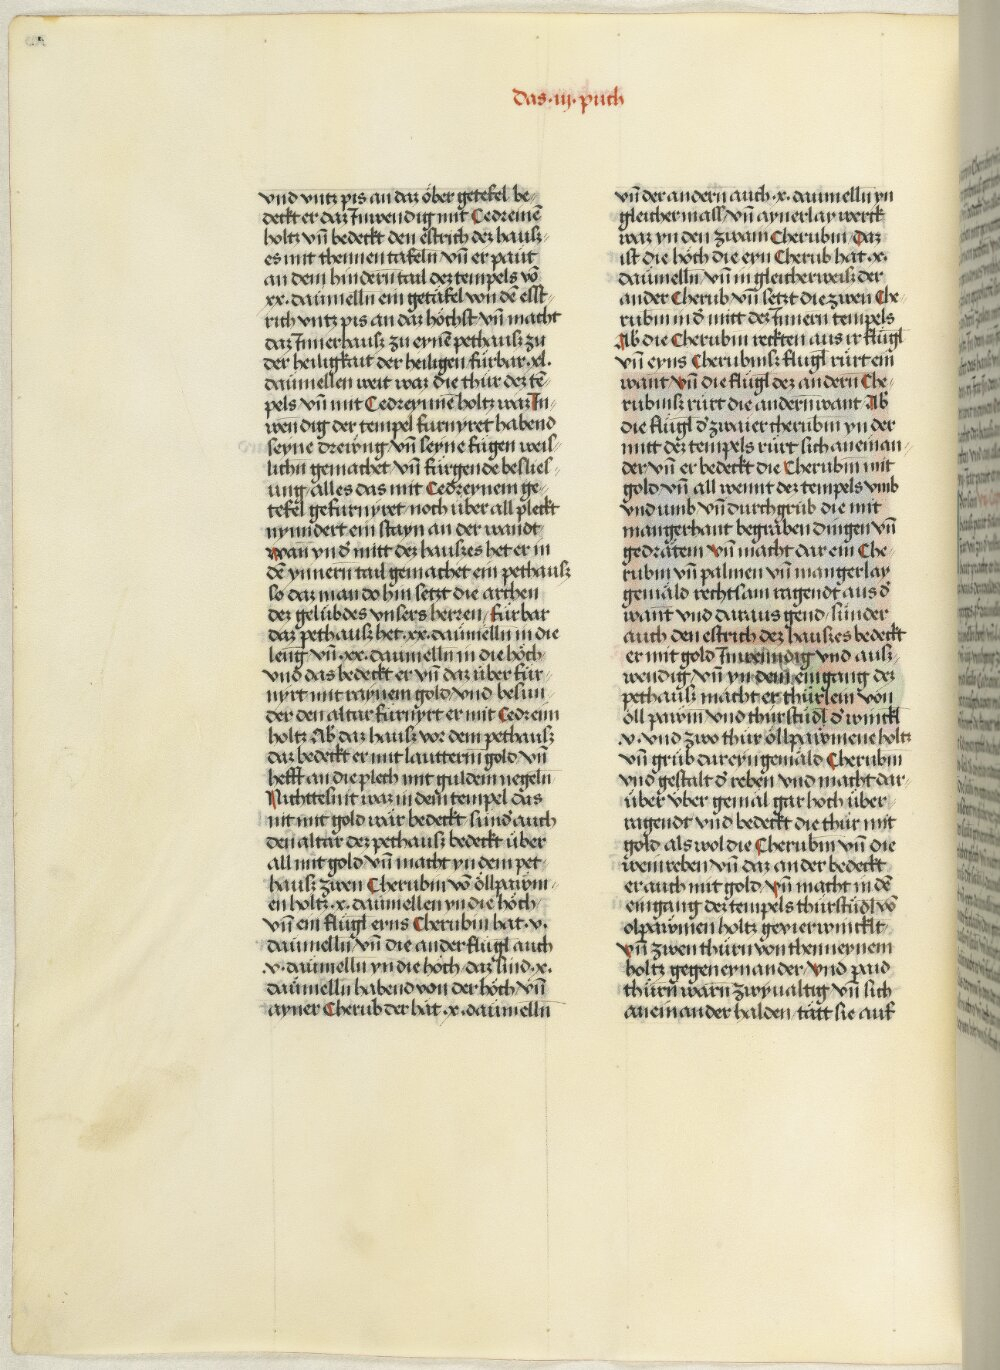 das·iij·puch
vnd vntz pis an daz öber getefel be⸗
deckt er daz Inwendig mit Cedreinē
holtz vn̄ bedeckt den estrich dez hausz⸗
es mit thennen tafeln vn̄ er paut
an dem hindern tail dez tempels võ
xx·daumelln ein getäfel von dē esst⸗
rich vntz pis an daz höchst vn̄ macht
daz Inner hausz zu eynē pethausz zu
der heiligkait der heiligen fürbar·xl·
daumellen weit waz die thür dez tē⸗
pels vn̄ mit Cedreynnē holtz waz In⸗
wendig der tempel furnyret habend
seyne dreiüng vn̄ seyne fügen weis⸗
lichn gemachet vn̄ fürgende besliess⸗
ung alles das mit Cedreynem ge⸗
tefel gefurnyret noch über all pleckt
nynndert ein stayn an der wandt
wan ynd̄ mitt dez hauszes het er in
dē ynnern tail gemachet ein pethausz
so daz man do hin setzt die archen
dez gelübdes vnsers herren fürbar
daz pethausz het·xx·daumelln in die
leng vn̄·xx·daumelln in die höch
vnd das bedeckt er vn̄ daz über für⸗
nyrt mit raynem gold vnd besun⸗
der den altar fürnyrt er mit Cedrein
holtz Ab daz hausz vor dem pethausz
daz bedeckt er mit lautterm gold vn̄
hefft an die plech mit guldein negeln
Nichttesnit waz in dem tempel das
nit mit gold wär bedeckt sund̄ auch
den altar dez pethausz bedeckt über
all mit gold vn̄ macht yn dem pet⸗
hausz zwen Cherubin võ öllpaẅm⸗
en holtz·x·daumellen yn die höch
vn̄ ein flügl eyns Cherubin hat·v·
daumelln vn̄ die ander flügl auch
·v·daumelln yn die höch daz sind·x·
daumelln habend von der höch vn̄
ayner Cherub der hat·x·daumelln
vn̄ der andern auch·x·daumelln yn
gleicher mass vn̄ aynerlay werck
waz yn den zwain Cherubin Daz
ist die höch die eyn Cherub hat·x·
daumelln vn̄ in gleicherweisz der
ander Cherub vn̄ setzt die zwen Che⸗
rubin in d̄ mitt dez Innern tempels
Ab die Cherubin reckten aus ir flügl
vn̄ eyns Cherubinsz flugl rürt ein
want vn̄ die flügl dez andern Che⸗
rubinsz rürt die andern want Ab
die flügl d̄ zwaier cherubin yn der
mitt dez tempels rürt sich aneinan⸗
der vn̄ er bedeckt die Cherubin mit
gold vn̄ all wennt dez tempels vmb
vnd umb vn̄ durchgrub die mit
mangerhant begraben dingen vn̄
gedrätem vn̄ macht dar ein Che⸗
rubin vn̄ palmen vn̄ mangerlay
gemäld rechtsam ragendt aus d̄
want vnd daraus gend sünder
auch den estrich dez hauszes bedeckt
er mit gold Inwendig vnd ausz⸗
wendig vn̄ yn dem eingang dez
pethausz macht er thürlein von
öll paẅm vnd thürstüdl d̄ winckl
·v·vnd zwo thür öllpaẅmene holtz
vn̄ grub dareyn gemäld Cherubin
vnd gestalt d̄ reben vnd macht dar⸗
über vber gemäl gar hoch über⸗
ragendt vnd bedeckt die thür mit
gold als wol die Cherubin vn̄ die
weinreben vn̄ daz ander bedeckt
er auch mit gold vn̄ macht in dē
eingang dez tempels thürstüdl võ
olpaẅmen holtz gevierwincklt
vn̄ zwen thürn von thenneynem
holtz gegen eynander vnd paid
thürn warn zwyualtig vn̄ sich
aneinander halden tätt sie auf